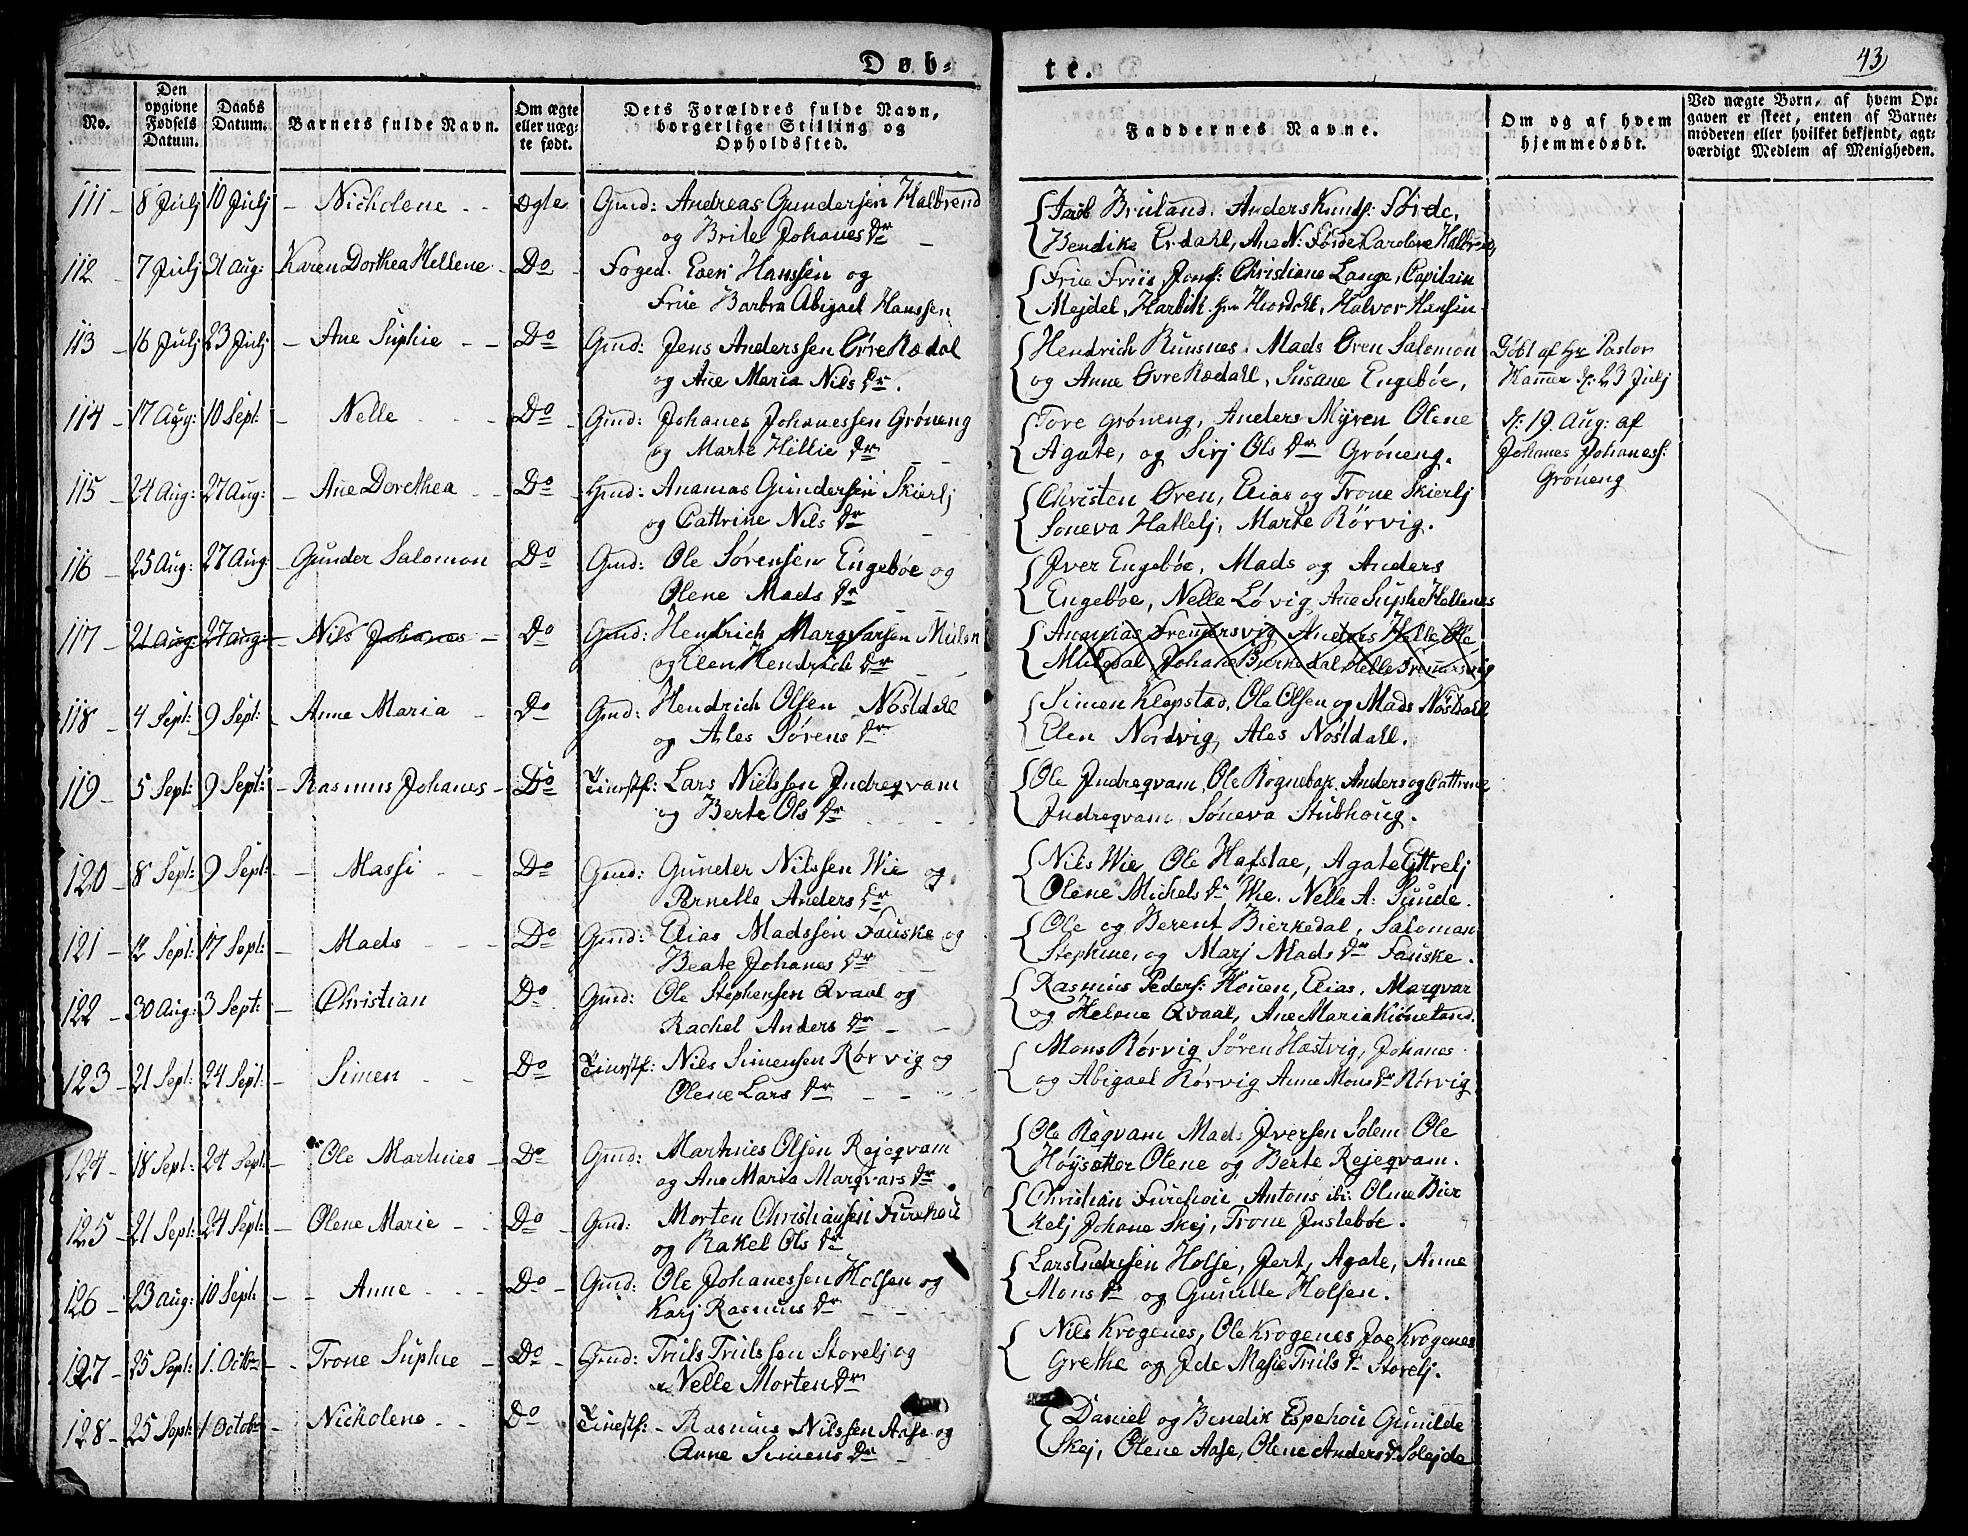 Døb-
te.
43
No.
Den opgivne Fødsels Datum.
Daabs Datum.
Barnets fulde Navn.
Om ægte eller uægte født.
Dets Forældres fulde Navn, borgerlige Stilling og Opholdssted.
Faddernes Navne.
Om og af hvem hjemmedøbt.
Ved uægte Børn, af hvem Opgaven er skeet, enten af Barnemoderen eller hvilket bekjendt, agtværdigt Medlem af Menigheden.
111 - 8 Julj 10 Julj - Nicholene - - Ægte Gmd: Andreas Gundersen Halbrend
og Brite Johanes Dr
Jacob Bruland, Anders Knuds: Førde,
Bendike Erdahl, Ane N: Førde Caroline Halbrend
112 7 Julj 31 Aug: Karen Dorthea Hellene - Do - Foged. Even Hanssen og
Frue Barbra Abigael Hanssen
Frue Friis Jomf: Christiane Lange, Capitain
Mejdel, Harbitz Halvor Hansen
113 - 16 Julj 23 Julj - Ane Suphie - - Do Gmd: Jens Anderssen Øvre Rædal
og Ane Maria Nils Dr.
Hendrich Runsnes, Mads Øren Salomon
og Anne Øvre Rædahl, Susane Engebøe,
Døbt af Hr Pastor
Hammer d: 23 Julj
114 - 17 Aug: 10 Sept: - Nelle - - Do - Gmd: Johanes Johanessen Grøneng
og Marte Hellie Dr
Tore Grøneng, Anders Myren Olene
Agate, og Sirj Ols Dr Grøneng.
d: 19. Aug: af
Johanes Johaness:
Grøneng
115 - 24 Aug: 27 Aug: - Ane Dorethea - - Do - Gmd: Ananias Gundersen Skierlj
og Cattrine Nils Dr
Christen Øren, Elias og Trone Skierlj
Søneva Hatlelj, Marte Rørvig.
116 - 25 Aug: 27 Aug: - Gunder Salomon Do Gmd: Ole Sørensen Engebøe og
Olene Mads Dr
Iver Engebøe, Mads og Anders
Engebøe, Nelle Løvig Ane Suphe Hellenes
117 - 21 Aug: 27 aug: - Nils Johanes - Do Gmd: Hendrich Marqvarsen
og Elen Hendrich Dr
Ananias Anders Helle Ole
Johane
118 - 4 Sept: 9 Sept: - Anne Maria - Do - Gmd: Hendrich Olsen Nösldahl
og Ales Sørens Dr
Simen Klopstad, Ole Olsen og Mads Nösldahl
Elen Nordvig, Ales Nösldall.
119 - 5 Sept: 9 Sept: - Rasmus Johanes - Do - Lars Nielssen Indreqvam
og Berte Ols Dr
Ole Indreqvam, Ole Rognebak, Anders og Cattrine
Indreqvam Søneva Stubhoug.
120 - 8 Sept: 9 Sept: - Massi - - Do Gmd: Gunder Nilssen Wie og
Pernelle Anders Dr
Nils Wie Ole Hafstae, Agate Ytrelj
Olene Michels Dr Wie. Nelle A: Sunde.
121 - 12 Sept: 17 Sept: - Mads - - - Do - Gmd: Elias Madssen Fauske og
Beate Johanes Dr
Ole og Berent Bierkedal, Saloman
Stephine, og Marj Mads Dr Fauske.
122 - 30 Aug: 3 Sept: - Christian Do - Gmd: Ole Stephensen Qvaal og
Rachel Anders Dr - -
Rasmus Peders: Houen, Elias, Marqvar
og Helene Qvaal, Ane Maria
123 - 21 Sept: 24 Sept: - Simen - - Do - Nils Simensen Rørvig og
Olene Lars Dr - - -
Mons Rørvig Søren Hæstvig, Johanes
og Abigael Rørvig Anne Mons Dr Rørvig
124 - 18 Sept: 24 Sept: - Ole Martines - Do - Gmd: Martines Olsen Rejeqvam
og Ane Maria Marqvars Dr
Ole Reqvam Mads Iversen Solem Ole
Høysætter Olene og Berte Rejeqvam.
125 - 21 Sept: 24 Sept: - Olene Marie - - Do - Gmd: Morten Christiansen Furehoii
og Rakel Ols Dr
Christian Furehoie Antons ibi: Olene Bier
kelj Johane Skej, Trone Instebøe.
126 - 23 aug: 10 Sept - - Anne - - - Do - Gmd: Ole Johanessen Holsen og
Karj Rasmus Dr
Lars Endresen Holse, Jert, Agate, Anne
Mons Dr og Gunille Holsen.
127 - 25 Sept: 1. Octbr - - Trone Suphie - Do - Gmd: Truls Trulssen Storelj og
Nelle Morten Dr
Nils Krogenes, Ole Krogenes Joe Krogenes
Grethe og Ide Masie Truls Dr Storelj.
128 - 25 Sept: 1 Octobr - Nicholene - - Do - Rasmus Nilssen Aase og
Anne Simens Dr
Daniel og Bendik Espehoii Gunilde
Skej, Olene Aase, Olene Anders Dr Solejde